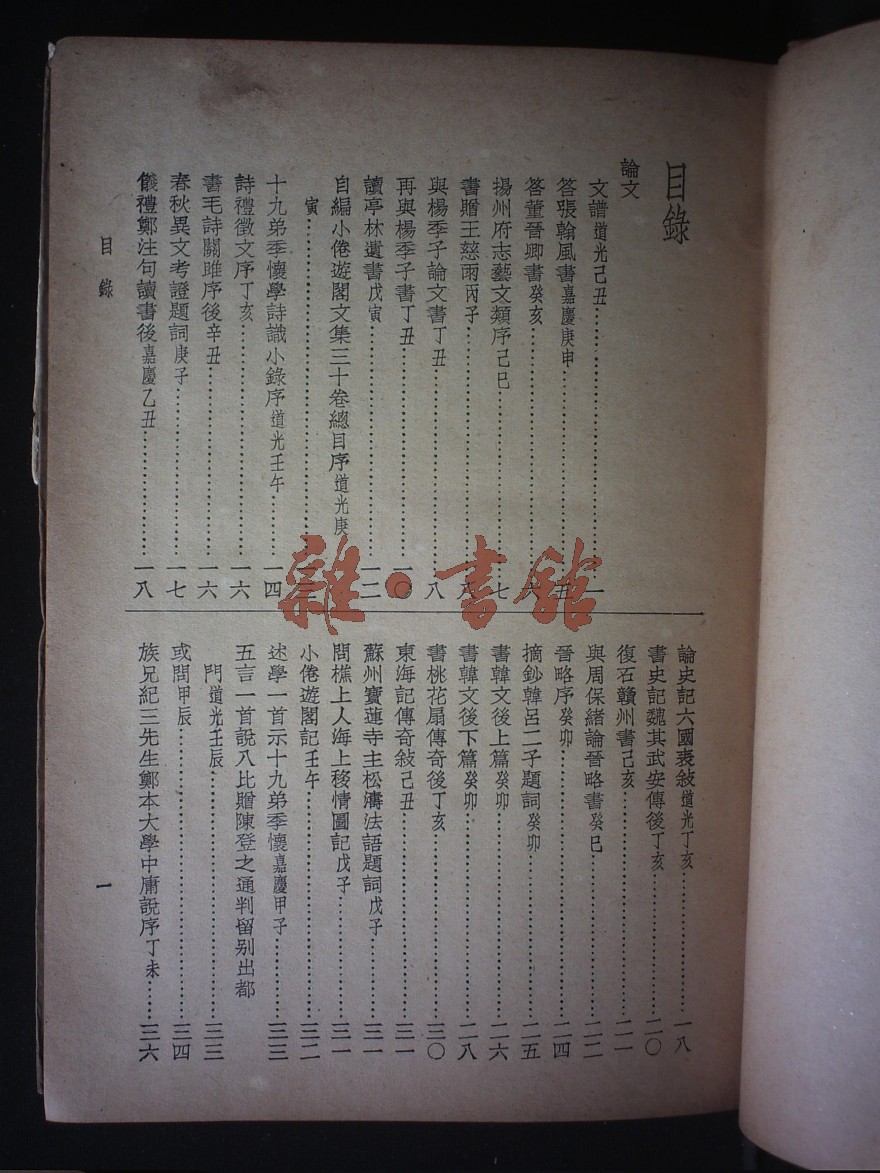 目錄
論文
文譜道光己丑……一
答張翰風書嘉慶庚申……五
答董晉卿書癸亥……六
揚州府志藝文類序己巳……七
書贈王慈雨丙子……八
與楊季子論文書丁丑……八
再與楊季子書丁丑……一〇
讀亭林遺書戊寅……一二
自編小倦遊閣文集三十卷總目序道光庚
寅……
十九弟季懷學詩識小錄序道光壬午……一四
詩禮徵文序丁亥……一六
書毛詩關雎序後辛丑……一六
春秋異文考證題詞庚子……一七
儀禮鄭注句讀書後嘉慶乙丑……一八
論史記六國表敍道光丁亥……一八
書史記魏其武安傳後丁亥……二〇
復石贛州書己亥……二一
與周保緒論晉略書癸巳……二二
晉略序癸卯……二四
摘鈔韓呂二子題詞癸卯……二五
書韓文後上篇癸卯……二六
書韓文後下篇癸卯……二八
書桃花扇傳奇後丁亥……三〇
東海記傳奇敍己丑……三一
蘇州寶蓮寺主松濤法語題詞戊子……三一
問樵上人海上移情圖記戊子……三一
小倦遊閣記壬午……三二
述學一首示十九弟季懷嘉慶甲子……三三
五言一首說八比贈陳登之通判留别出都
門道光壬辰……三三
或問甲辰……三四
族兄紀三先生鄭本大學中庸說序丁未……三六
目錄
一
雜·書館